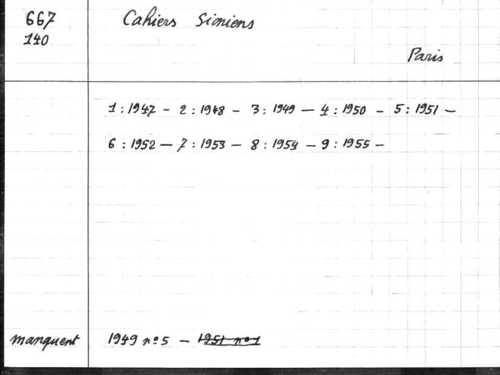 667
140
Cahiers Simiens
Paris
1 : 1947 - 2 : 1948 - 3 : 1949 - 4 : 1950 - 5 : 1951 -
6 : 1952 - 7 : 1953 - 8 : 1954 - 9 : 1955 -
manquent 1949 nº 5 - 1951 nº 1